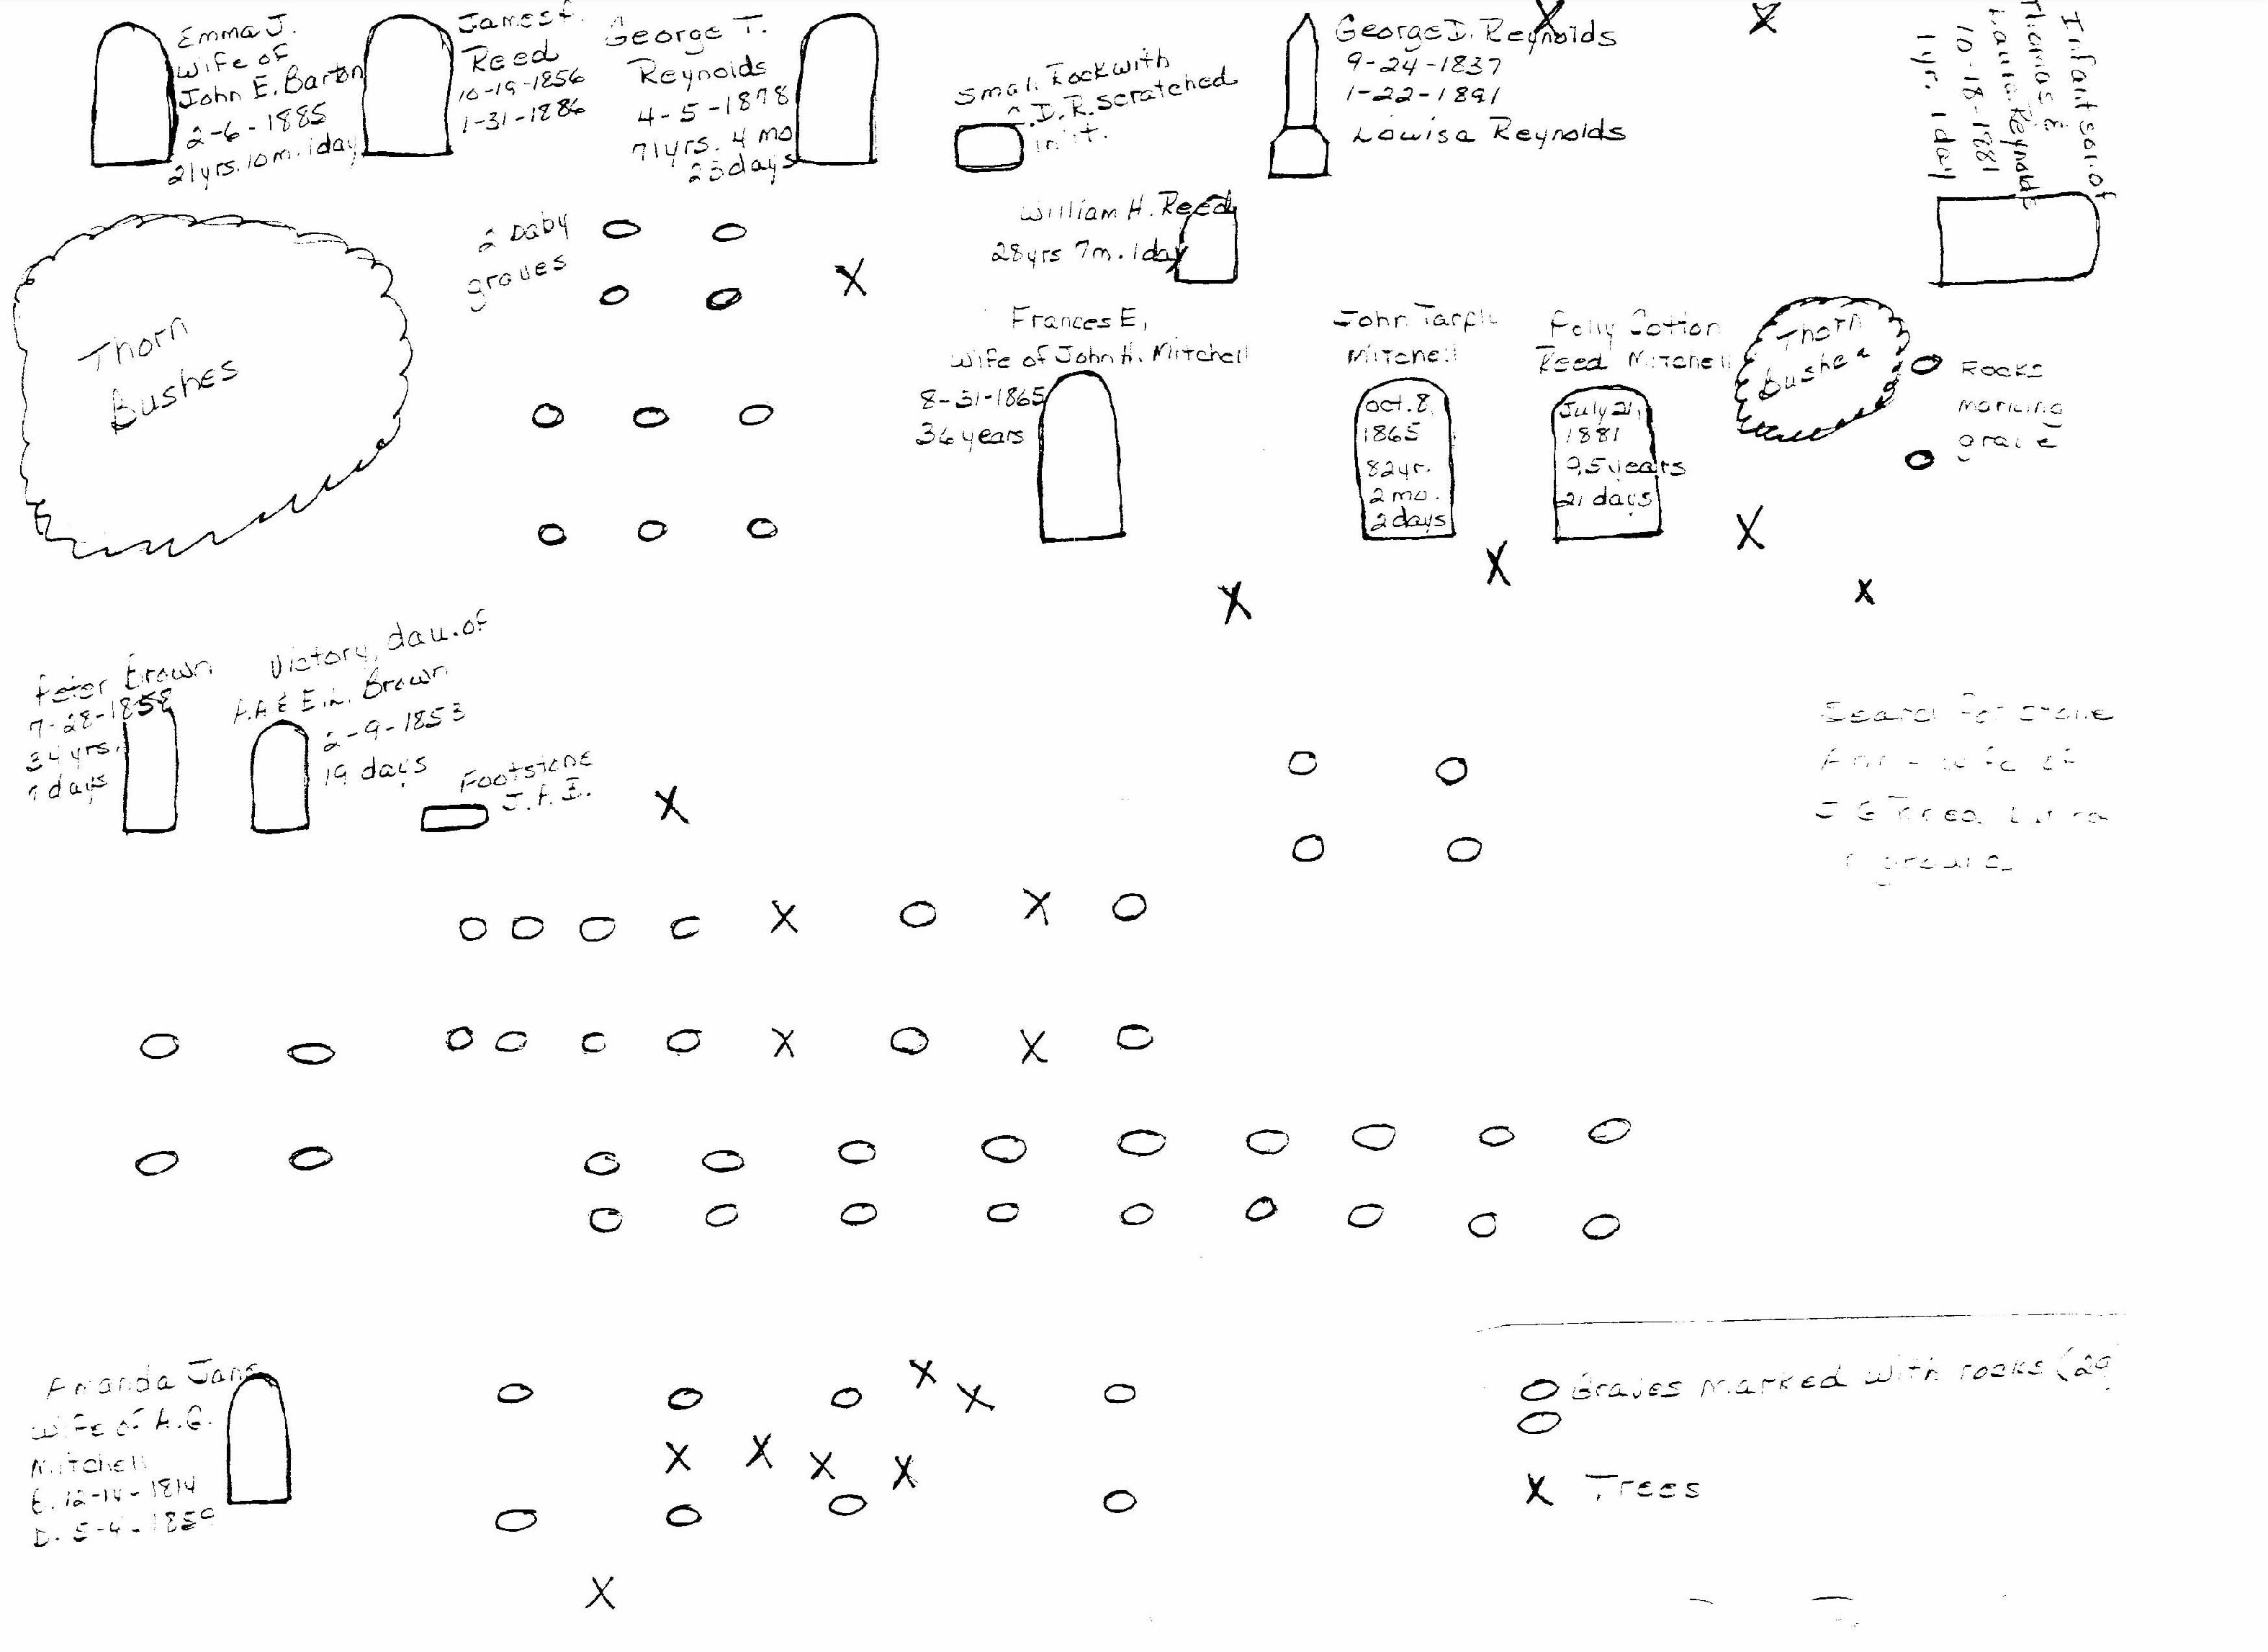 Emma J.
Wife of
John E. Barton
2-6-1885
21yrs. 10m. 1day
James
Reed
10-19-1856
1-31-1886
George T.
Reynolds
4-5-1878
71yrs. 4 mo
23days
Small Rock with
.D.R. scratched
in it.
George D. Reynolds
9-24-1837
1-22-1891
Louisa Reynolds
Infant son of
Thomas &
Reynolds
10-18-1881
1yr. 1day
2 baby
graves
William H. Reed
28yrs 7m. 1day
Thorn
Bushes
Frances E,
Wife of John H. Mitchell
8-31-1865
36 years
John Tarply
Mitchell
Oct. 8,
1865
82yr.
2 mo.
2days
Polly Cotton
Reed Mitchell
July 21,
1881
95 years
21 days
Thorn
Bushes
Rocks
marking
grave
Peter Brown
7-28-1858
34yrs.
days
Victory, dau. of
A.A & E.L. Brown
2-9-1853
19 days
Footstone
J.
Search for stone
Ann - wife of
J G
ground
Amanda Jane
Wife of A.G.
Mitchell
B. 12-14-1814
D. 5-4-1859
Graves marked with rocks (29)
X Trees